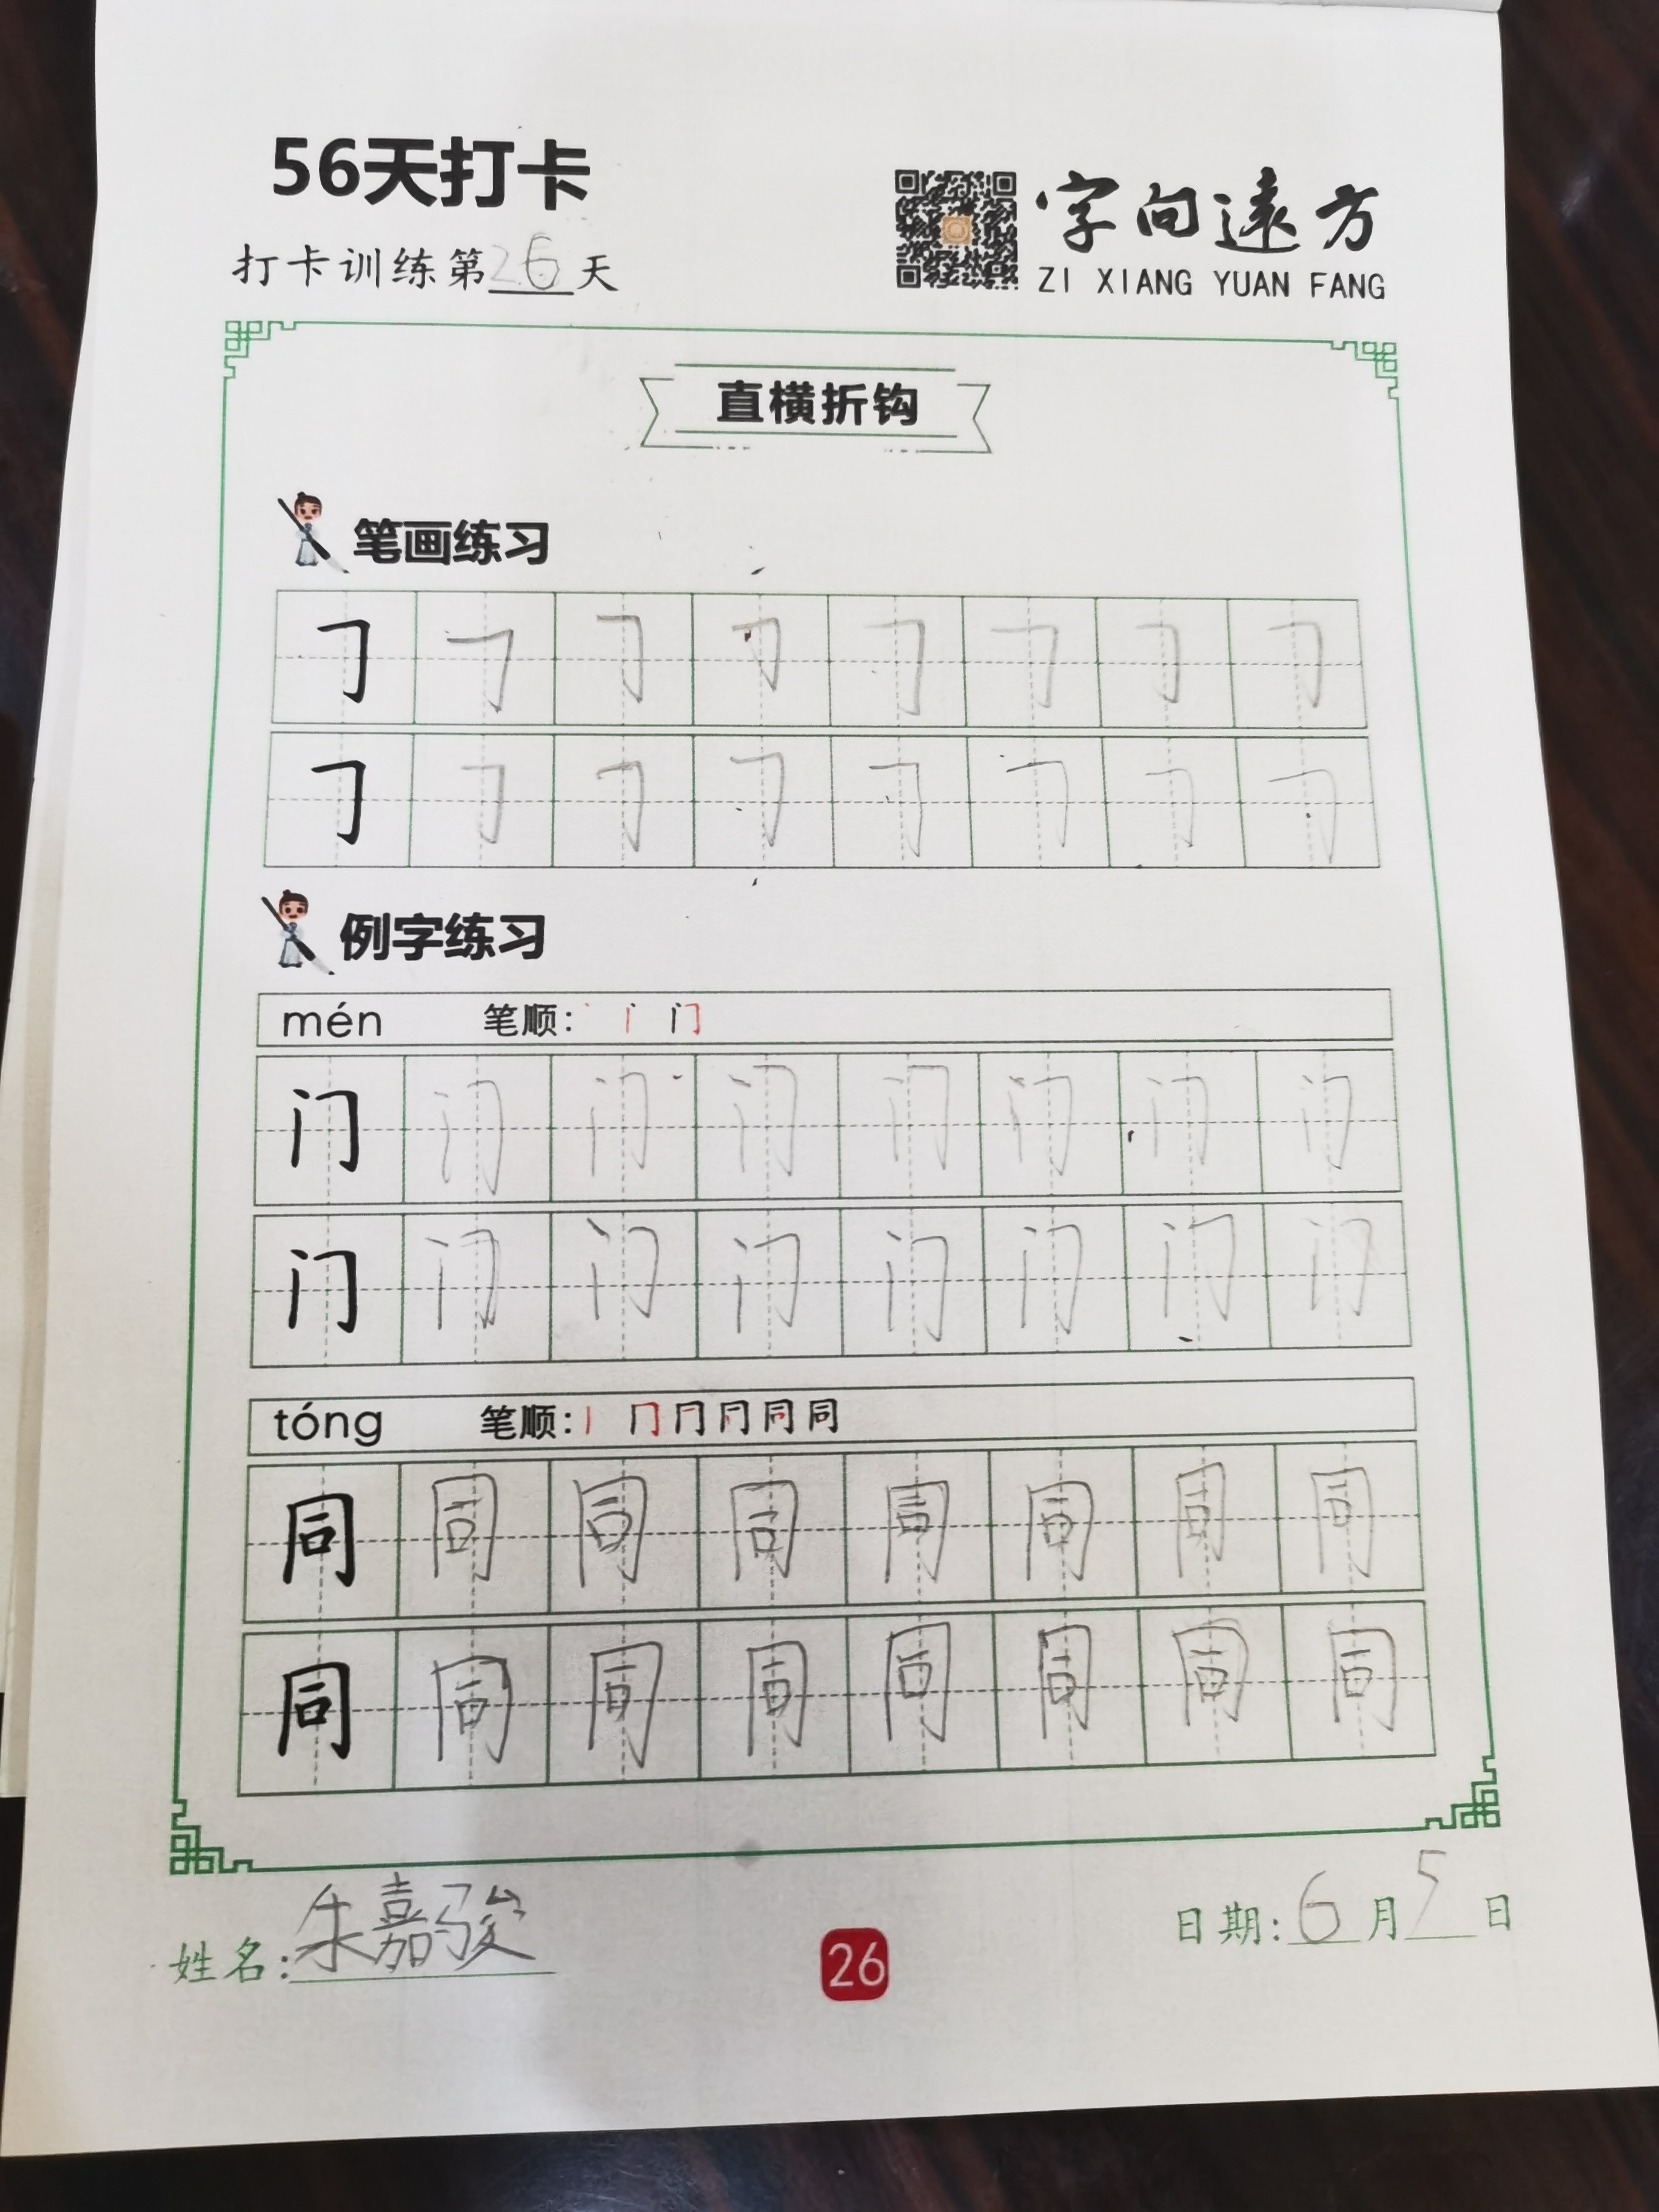 56天打卡
字向遠方
打卡训练第26天
ZI XIANG YUAN FANG
直横折钩
笔画练习
𠃌 𠃌 𠃌 𠃌 𠃌 𠃌 𠃌 𠃌
𠃌 𠃌 𠃌 𠃌 𠃌 𠃌 𠃌 𠃌
例字练习
mén 笔顺: 丶 丨 门
门 门 门 门 门 门 门 门
门 门 门 门 门 门 门 门
tóng 笔顺: 丨 冂 同
同 同 同 同 同 同 同 同
同 同 同 同 同 同 同 同
姓名: 朱嘉骏
26
日期: 6月5日